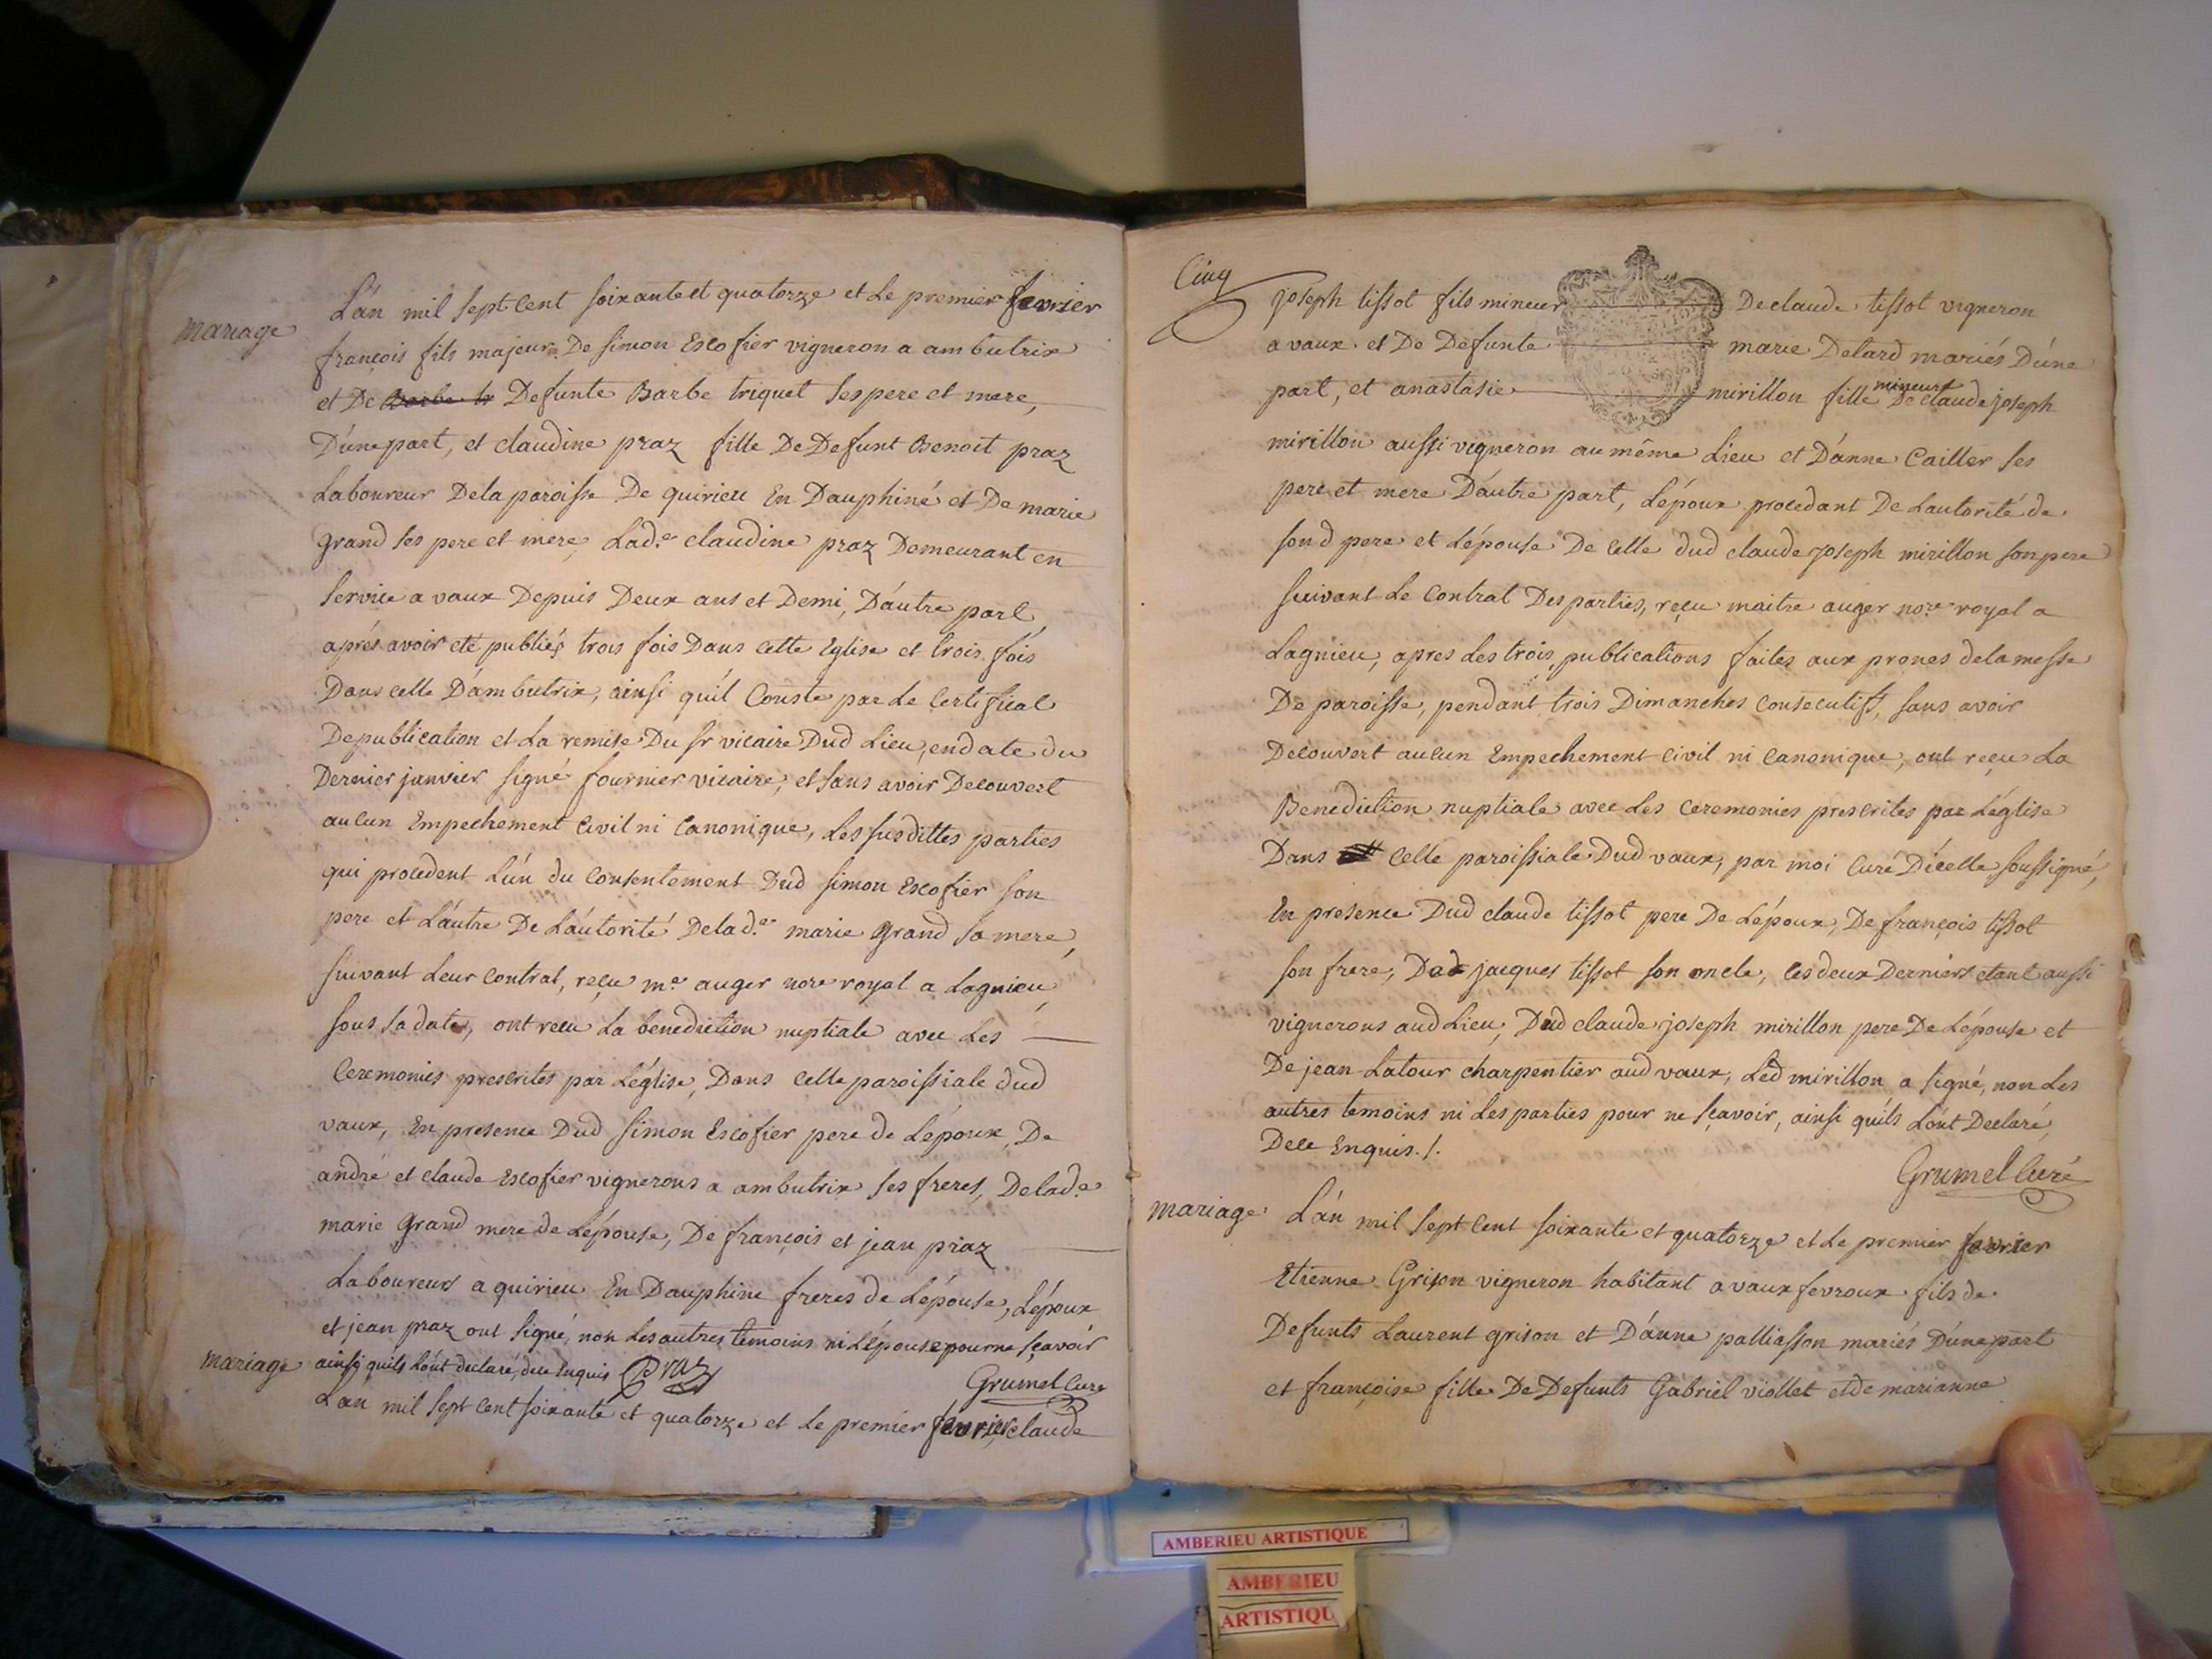 mariage
L'án mil sept Cent soixante et quatorze et Le premier fevrier
françois fils majeur De simon Escofier vigneron a ambutrix
et De Barbe tr Defunte Barbe triquet ses pere et mere,
D'úne part, et claudine praz fille De Defunt Benoit praz
Laboureur Dela paroisse De quirieu En Dauphiné et De marie
grand ses pere et mere, Lad.e claudine praz Demeurant en
service a vaux Depuis Deux ans et Demi, D'áutre part,
aprés avoir eté publiés trois fois Dans cette Eglise et trois fois
Dans celle D'ámbutrix, ainsi qu'il Conste par Le Certificat
De publication et La remise Du sr vicaire Dud Lieu, en date du
Dernier janvier signé fournier vicaire, et sans avoir Decouvert
aucun Empechement Civil ni Canonique, Les susdittes parties
qui procedent L'ún du Consentement Dud simon Escofier son
pere et L'áutre De L'áutorité Delad.e marie grand sa mere,
suivant Leur Contrat, reçu m.e auger nore royal a Lagnieu,
sous sa date, ont reçu La benediction nuptiale avec Les
Ceremonies prescrites par L'église, Dans Celle paroissiale dud
vaux, En presence Dud simon Escofier pere de L'époux, De
andré et claude Escofier vignerons a ambutrix ses freres, Delad.e
marie grand mere de L'épouse, De françois et jean praz
Laboureurs a quirieu En Dauphiné freres de L'épouse, L'époux
et jean praz ont signé, non Les autres temoins ni L'épouse pour ne sçavoir
ainsi quils L'ónt declaré, dece Enquis Praz
Grumel Curé
mariage
L'an mil sept Cent soixante et quatorze et Le premier fevrier, claude
Cinq
joseph tissot fils mineur De claude tissot vigneron
a vaux et De Defunte marie Delard mariés D'úne
part, et anastasie mirillon fille mineure De claude joseph
mirillon aussi vigneron au même Lieu et D'ánne Cailler ses
pere et mere D'áutre part, L'époux procedant De Lautorité de
sond pere et L'épouse De Celle dud claude joseph mirillon son pere
suivant Le Contrat Des parties, reçu maitre auger nore royal a
Lagnieu, apres Les trois publications faites aux prones dela messe
De paroisse, pendant trois Dimanches Consecutifs, sans avoir
Decouvert aucun Empechement Civil ni Canonique, ont reçu La
Benediction nuptiale avec Les Ceremonies prescrites par L'église
Dans Celle paroissiale Dud vaux, par moi Curé D'icelle soussigné,
En presence Dud claude tissot pere De L'époux, De françois tissot
son frere, De jacques tissot son oncle, Ces deux Derniers etant aussi
vignerons aud Lieu, Dud claude joseph mirillon pere De L'épouse et
De jean Latour charpentier aud vaux, Led mirillon a signé, non Les
autres temoins ni Les parties pour ne sçavoir, ainsi qu'íls L'ónt Declaré,
Dece Enquis./.
Grumel Curé
mariage
L'án mil sept Cent soixante et quatorze et Le premier fevrier
Etienne Grison vigneron habitant a vaux fevroux fils de
Defunts Laurent grison et D'ánne palliasson mariés D'úne part
et françoise fille De Defunts Gabriel viollet et de marianne
AMBERIEU ARTISTIQUE
AMBERIEU
ARTISTIQU